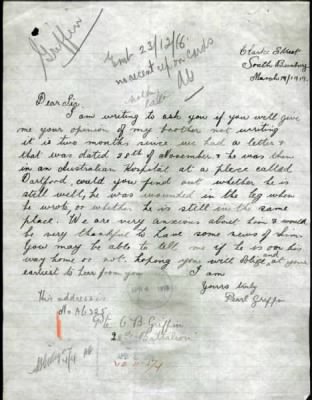 Griffin
Emb 23/12/16
no recent rep on cards
Clarke Street
South Bunbury
March 19/1917.
Dear Sir
I am writing to ask you if you will give
me your opinion of my brother not writing
it is two months since we had a letter &
that was dated 28th of November & he was then
in an Australian Hospital at a place called
Dartford could you find out whether he is
still well, he was wounded in the leg when
he wrote or whether he is still in the same
place. We are very anxious about him & would
be very thankful to have some news of him.
You may be able to tell me if he is on his
way home or not. hoping you will oblige and at your
earliest to hear from you I am
Yours truly
Pearl Griffin
This address is
Pte C. B. Griffin
Battalion